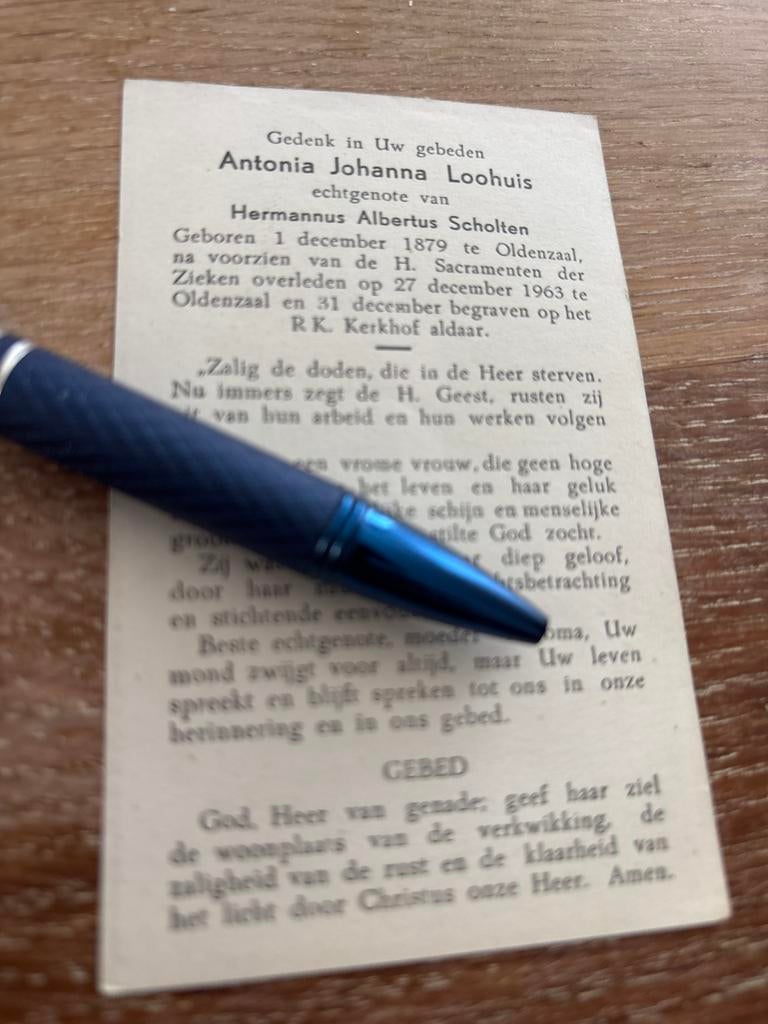 Gedenk in Uw gebeden
Antonia Johanna Loohuis
echtgenote van
Hermannus Albertus Scholten
Geboren 1 december 1879 te Oldenzaal,
na voorzien van de H. Sacramenten der
Zieken overleden op 27 december 1963 te
Oldenzaal en 31 december begraven op het
R.K. Kerkhof aldaar.
„Zalig de doden, die in de Heer sterven.
Nu immers zegt de H. Geest, rusten zij
van hun arbeid en hun werken volgen
vrome vrouw, die geen hoge
het leven en haar geluk
schijn en menselijke
God zocht.
Zij diep geloof,
door haar
en stichtende
Beste echtgenote, moeder oma, Uw
mond zwijgt voor altijd, maar Uw leven
spreekt en blijft spreken tot ons in onze
herinnering en in ons gebed.
GEBED
God, Heer van genade; geef haar ziel
de woonplaats van de verkwikking, de
zaligheid van de rust en de klaarheid van
het licht door Christus onze Heer. Amen.